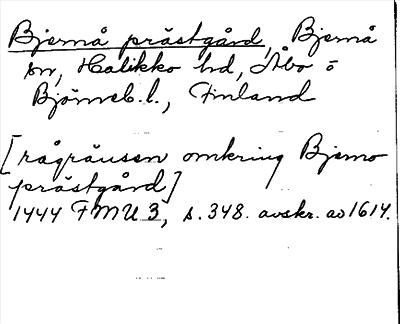 Bjernå prästgård, Bjernå
sn, Halikko hd, Åbo o
Björneb. l., Finland
[rågräusen omkring Bjerno
prästgård]
1444 FMU 3, s. 348. avskr. av 1614.